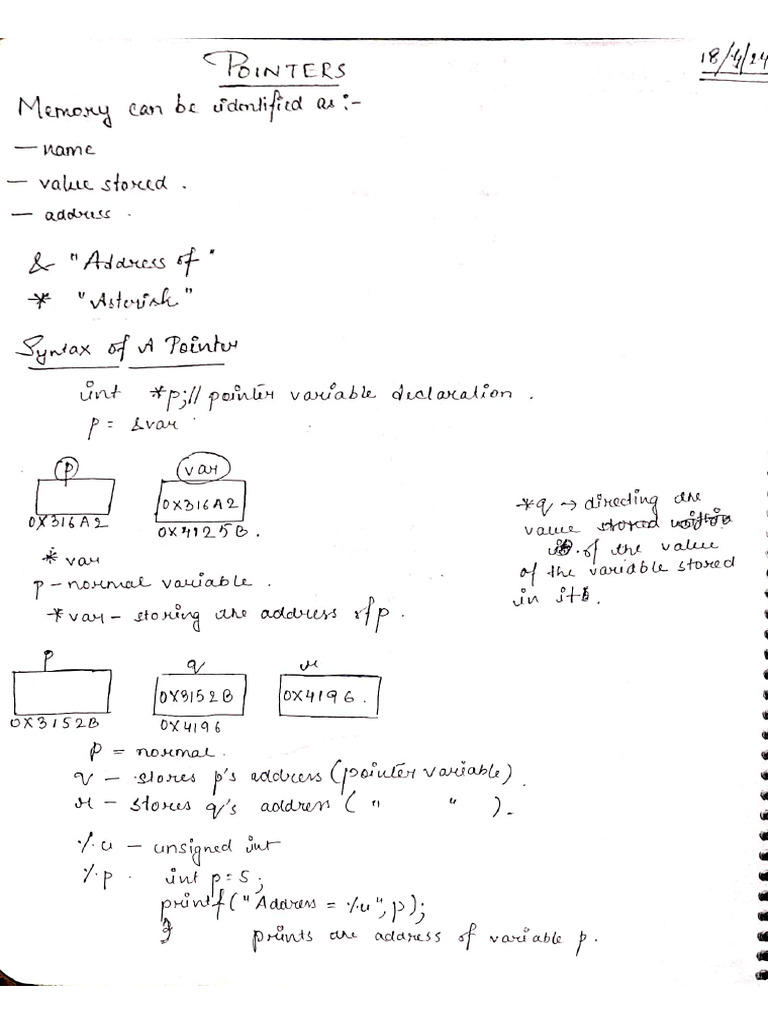 POINTERS
18/4/24
Memory can be identified as:-
— name
— value stored.
— address.
& "Address of"
* "Asterisk"
Syntax of A Pointer
int *p;// pointer variable declaration.
p = &var
p var
0X316A2
0X316A2 0X4125B.
* var
p – normal variable.
*var – storing the address of p.
*q → directing the
value
of the value
of the variable stored
in it.
p q r
0X3152B 0X4196.
0X3152B 0X4196
p = normal.
q – stores p's address (pointer variable).
r – stores q's address ( " " ).
%u – unsigned int
%p. int p=5;
printf("Address = %u",p);
} prints the address of variable p.